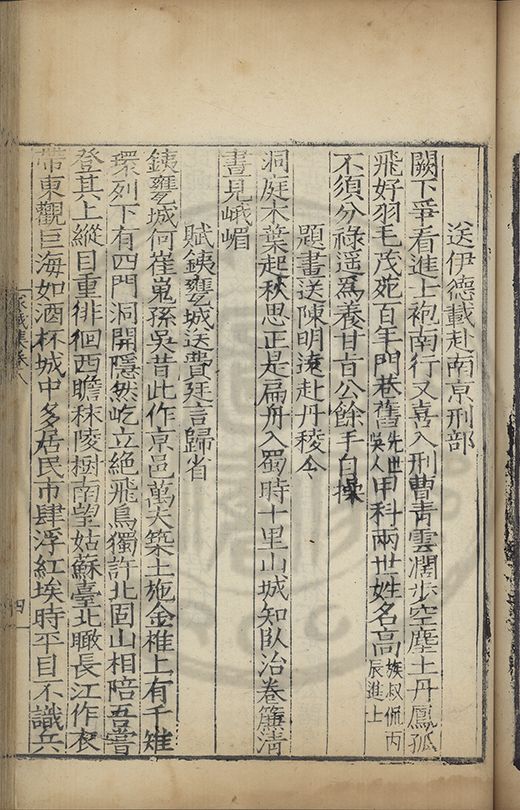 送伊德載赴南京刑部
闕下爭看進士袍南行又喜入刑曹青雲濶步空塵土丹鳳孤
飛好羽毛茂苑百年門巷舊先世吳人甲科兩世姓名高族叔侃丙辰進士
不須分祿遥爲養甘旨公餘手自操
題畫送陳明遠赴丹稜令
洞庭木葉起秋思正是扁舟入蜀時十里山城知臥治卷簾清
晝見峨嵋
賦鐵甕城送費廷言歸省
鐵甕城何崔嵬孫吳昔此作京邑萬夫築土施金椎上有千雉
環列下有四門洞開隱然屹立絶飛鳥獨許北固山相陪吾嘗
登其上縱目重徘徊西瞻秣陵樹南望姑蘇臺北瞰長江作衣
帶東觀巨海如酒杯城中多居民市肆浮紅埃時平目不識兵
家藏集卷八
四